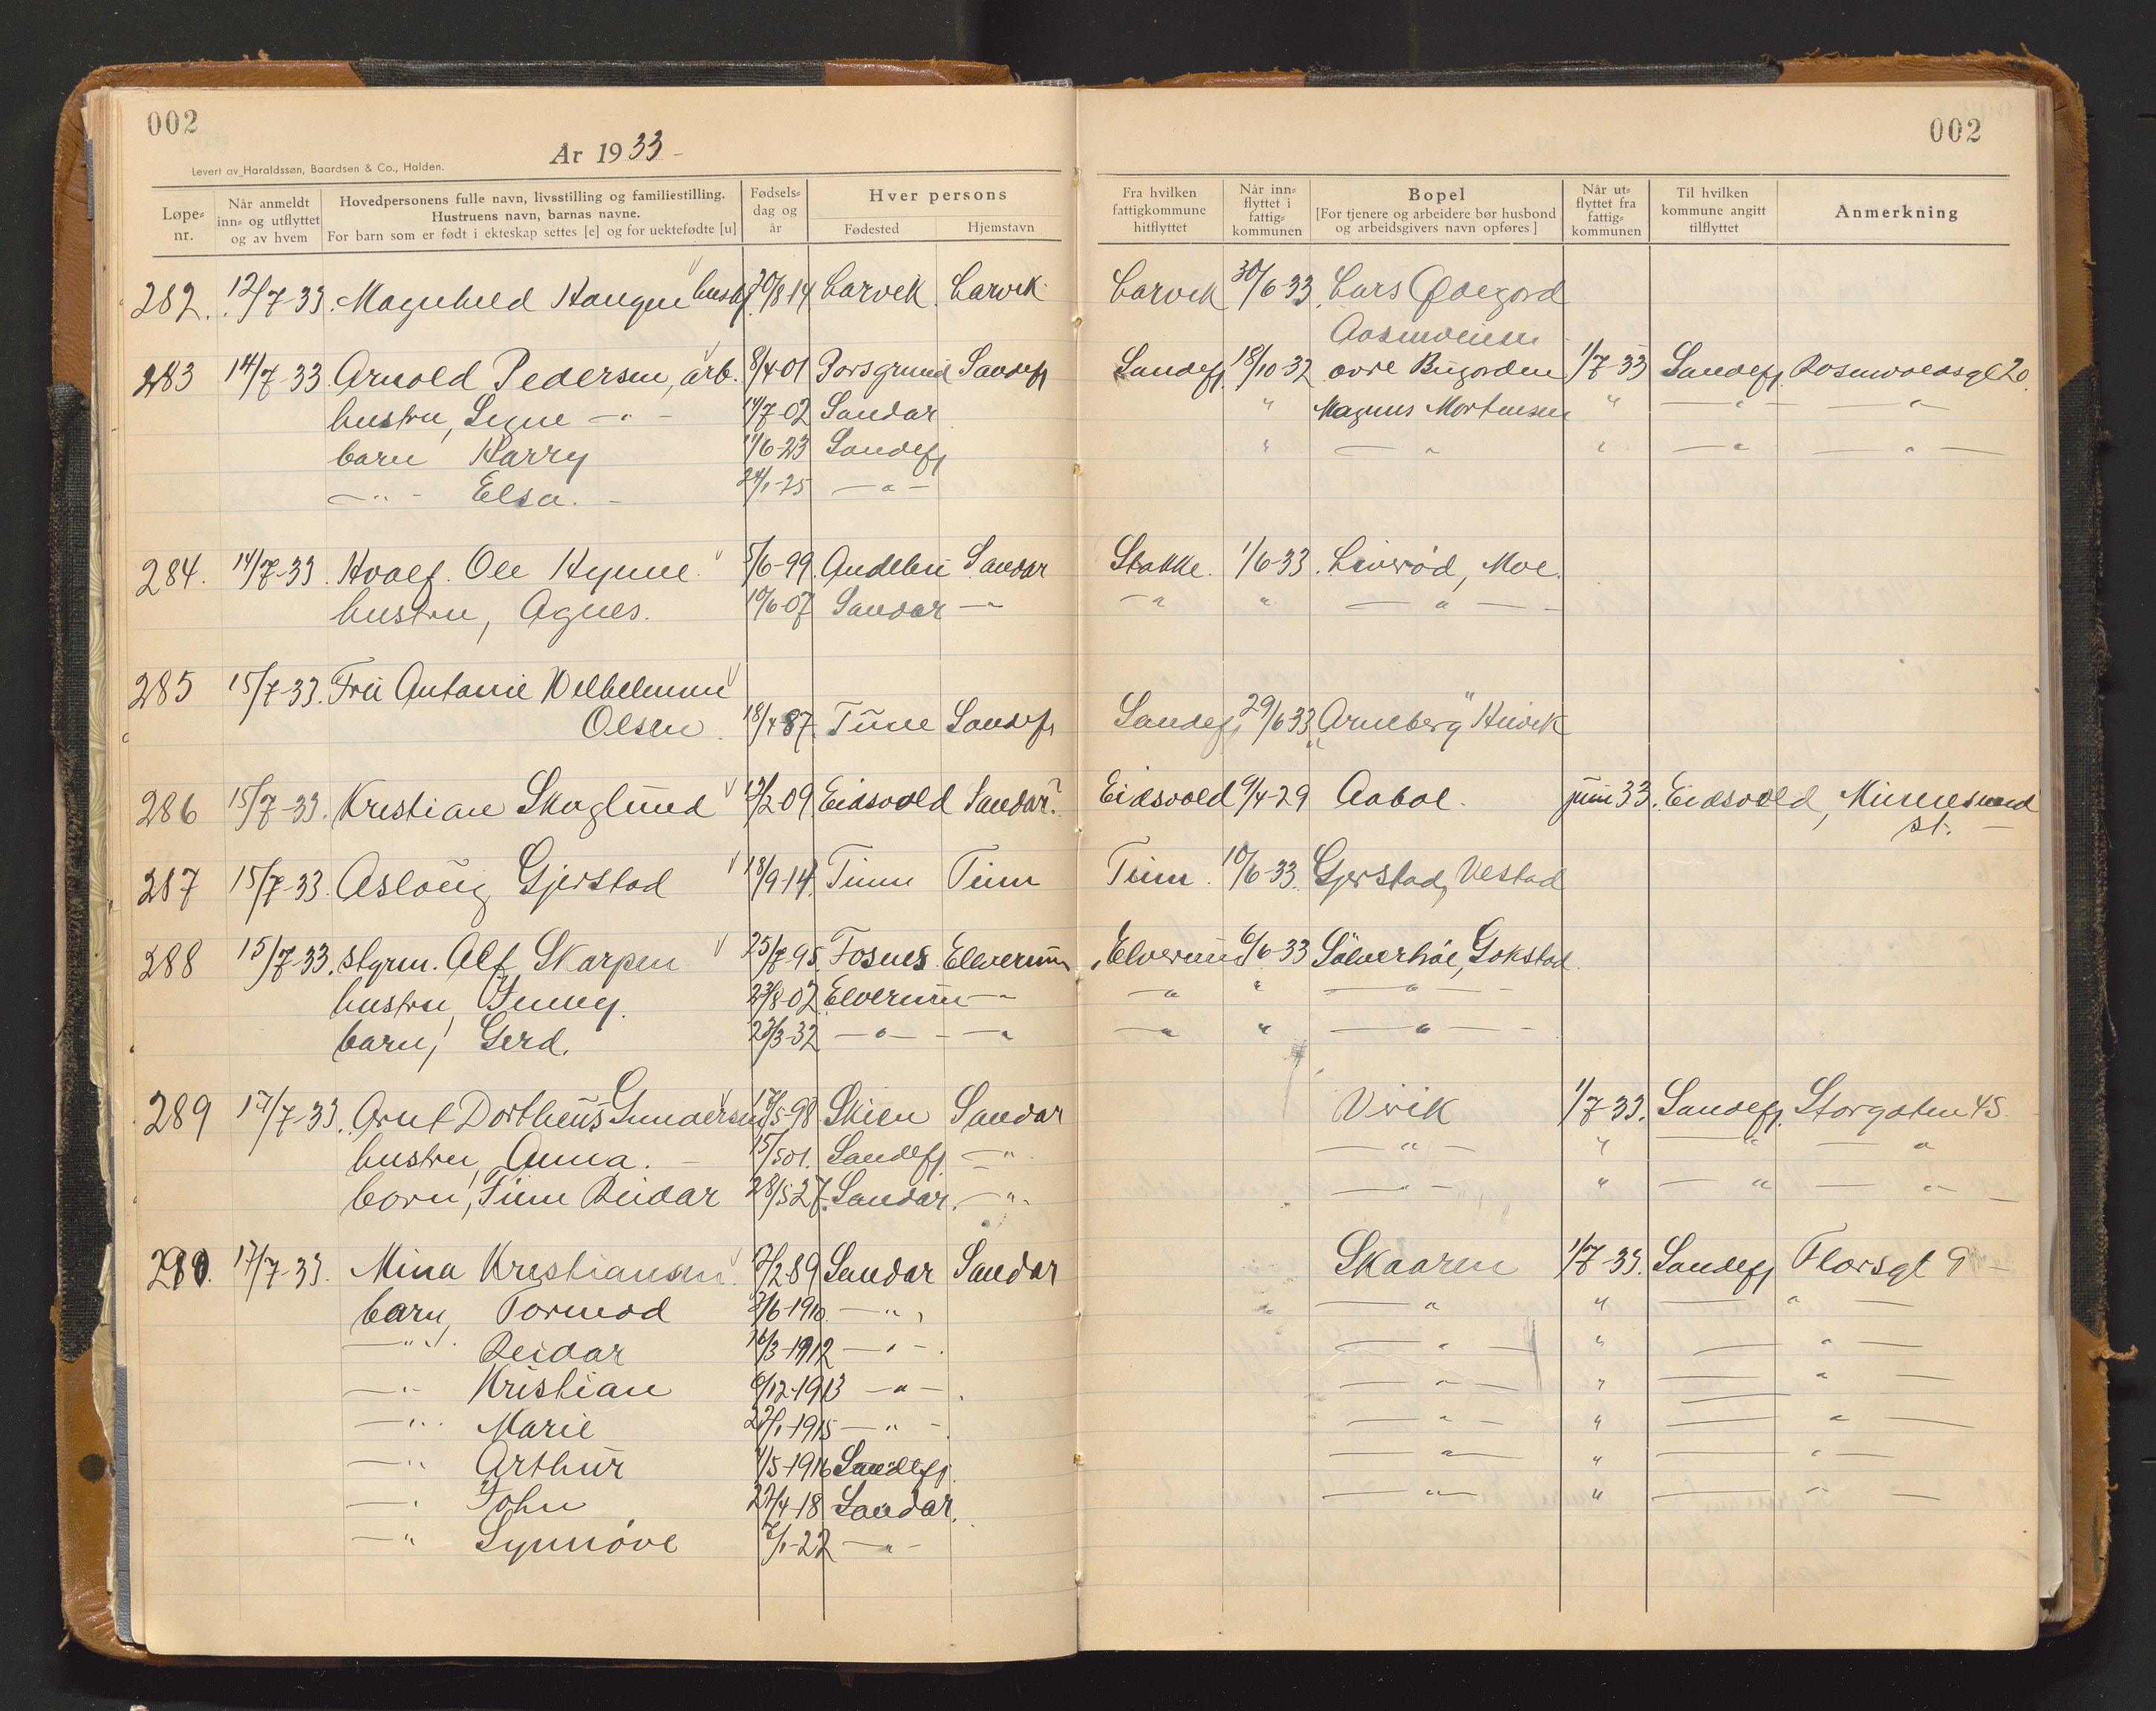 002
002
År 1933 -
Levert av Haraldssøn, Baardsen & Co., Halden.
Løpe-nr. Når anmeldt inn- og utflyttet og av hvem Hovedpersonens fulle navn, livsstilling og familiestilling. Hustruens navn, barnas navne. For barn som er født i ekteskap settes [e] og for uektefødte [u] Fødsels-dag og år Hver persons Fødested Hjemstavn Fra hvilken fattigkommune hitflyttet Når inn-flyttet i fattig-kommunen Bopel [For tjenere og arbeidere bør husbond og arbeidsgivers navn opføres] Når ut-flyttet fra fattig-kommunen Til hvilken kommune angitt tilflyttet Anmerkning
282. 12/7-33. Magnhild Haugen hush. 20/8-14 Larvik Larvik Larvik 30/6-33. Lars Ødegord
Aasmveien
283 14/7-33 Arnold Pedersen, arb. 8/4-01 Porsgrund Sandefj Sandefj. 18/10-32 øvre Bugorden 1/7-33 Sandefj. Rosenvoldsgt 20.
hustru, Signe -"- 14/7-02 Sandar " Magnus Mortensen " -"- -"-
barn Harry 11/6-23 Sandefj " -"- " -"- -"-
-"- Elsa. 24/1-25 -"-
284. 14/7-33. Hvalf. Ole Hynne 5/6-99 Andebu Sandar Stokke. 1/6-33. Liverød, Moe.
hustru, Agnes. 10/6-07 Sandar -"- -"- " -"-
285 15/7-33. Fru Antonie Wilhelmine
Olsen 18/4 87 Tune Sandefj Sandefj 29/6 33 "Arneberg" Huvik
286 15/7-33. Kristian Skoglund 12/2-09 Eidsvold Sandar? Eidsvold 9/4-29 Aabol. juni 33. Eidsvold, Minnesund
st. -
287 15/7-33. Aslaug Gjerstad 18/9-14. Tinn Tinn Tinn. 10/6-33. Gjerstad, Vestad
288 15/7-33. styrm. Alf Skarpen 25/7-95. Fosnes Elverum Elverum 6/6-33 Sølverhøi, Gokstad.
hustru, Jenny. 23/8-02 Elverum -"- -"- " -"-
barn, Gerd. 23/3-32 -"- -"- -"- " -"-
289 17/7-33. Arnt Dortheus Gundersen 17/5-98 Skien Sandar Virik 1/7-33. Sandefj. Storgaten 45.
hustru, Anna. - 15/5 01. Sandefj. -"- -"- " -"- -"-
barn, Finn Reidar 28/5 27. Sandar. -"- -"- " -"- -"-
290. 17/7-33. Mina Kristiansen. 7/2 89 Sandar Sandar Skaaren 1/7-33. Sandefj Florsgt 9 -
barn, Tormod 2/6-1910. -"- -"- " -"-
-"- Reidar 16/3-1912 -"- -"- " -"-
-"- Kristian 6/12-1913 -"- -"- " -"-
-"- Marie 27/1-1915 -"- -"- " -"-
-"- Arthur 1/5-1916 Sandefj. -"- " -"-
-"- John 27/4-18 Sandar. -"- " -"-
-"- Synnøve 7/1-22 -"-